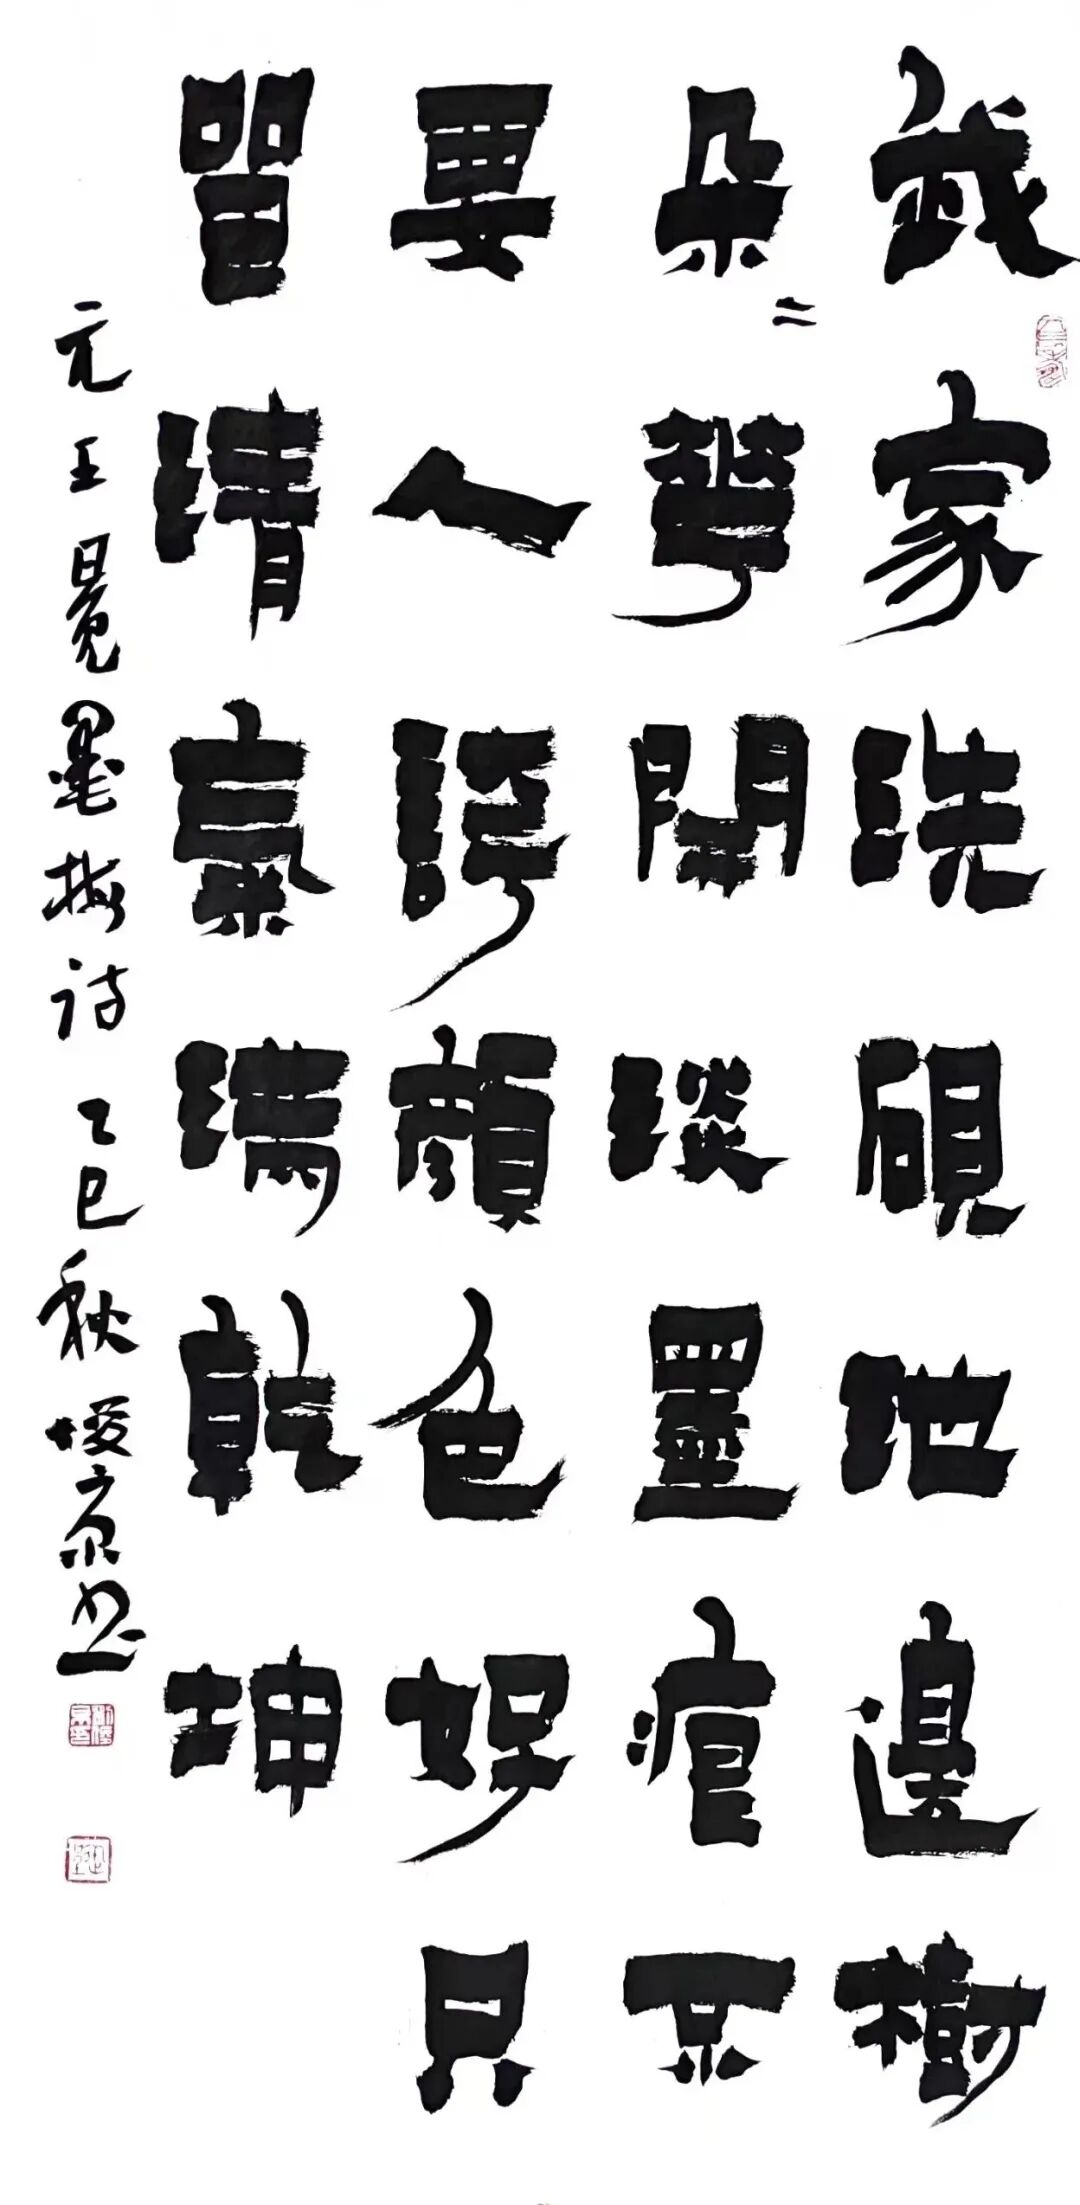 我家洗硯池邊樹
朵〻華開淡墨痕不
要人誇顏色好只
留清氣滿乾坤
元王冕墨梅诗乙巳秋京书